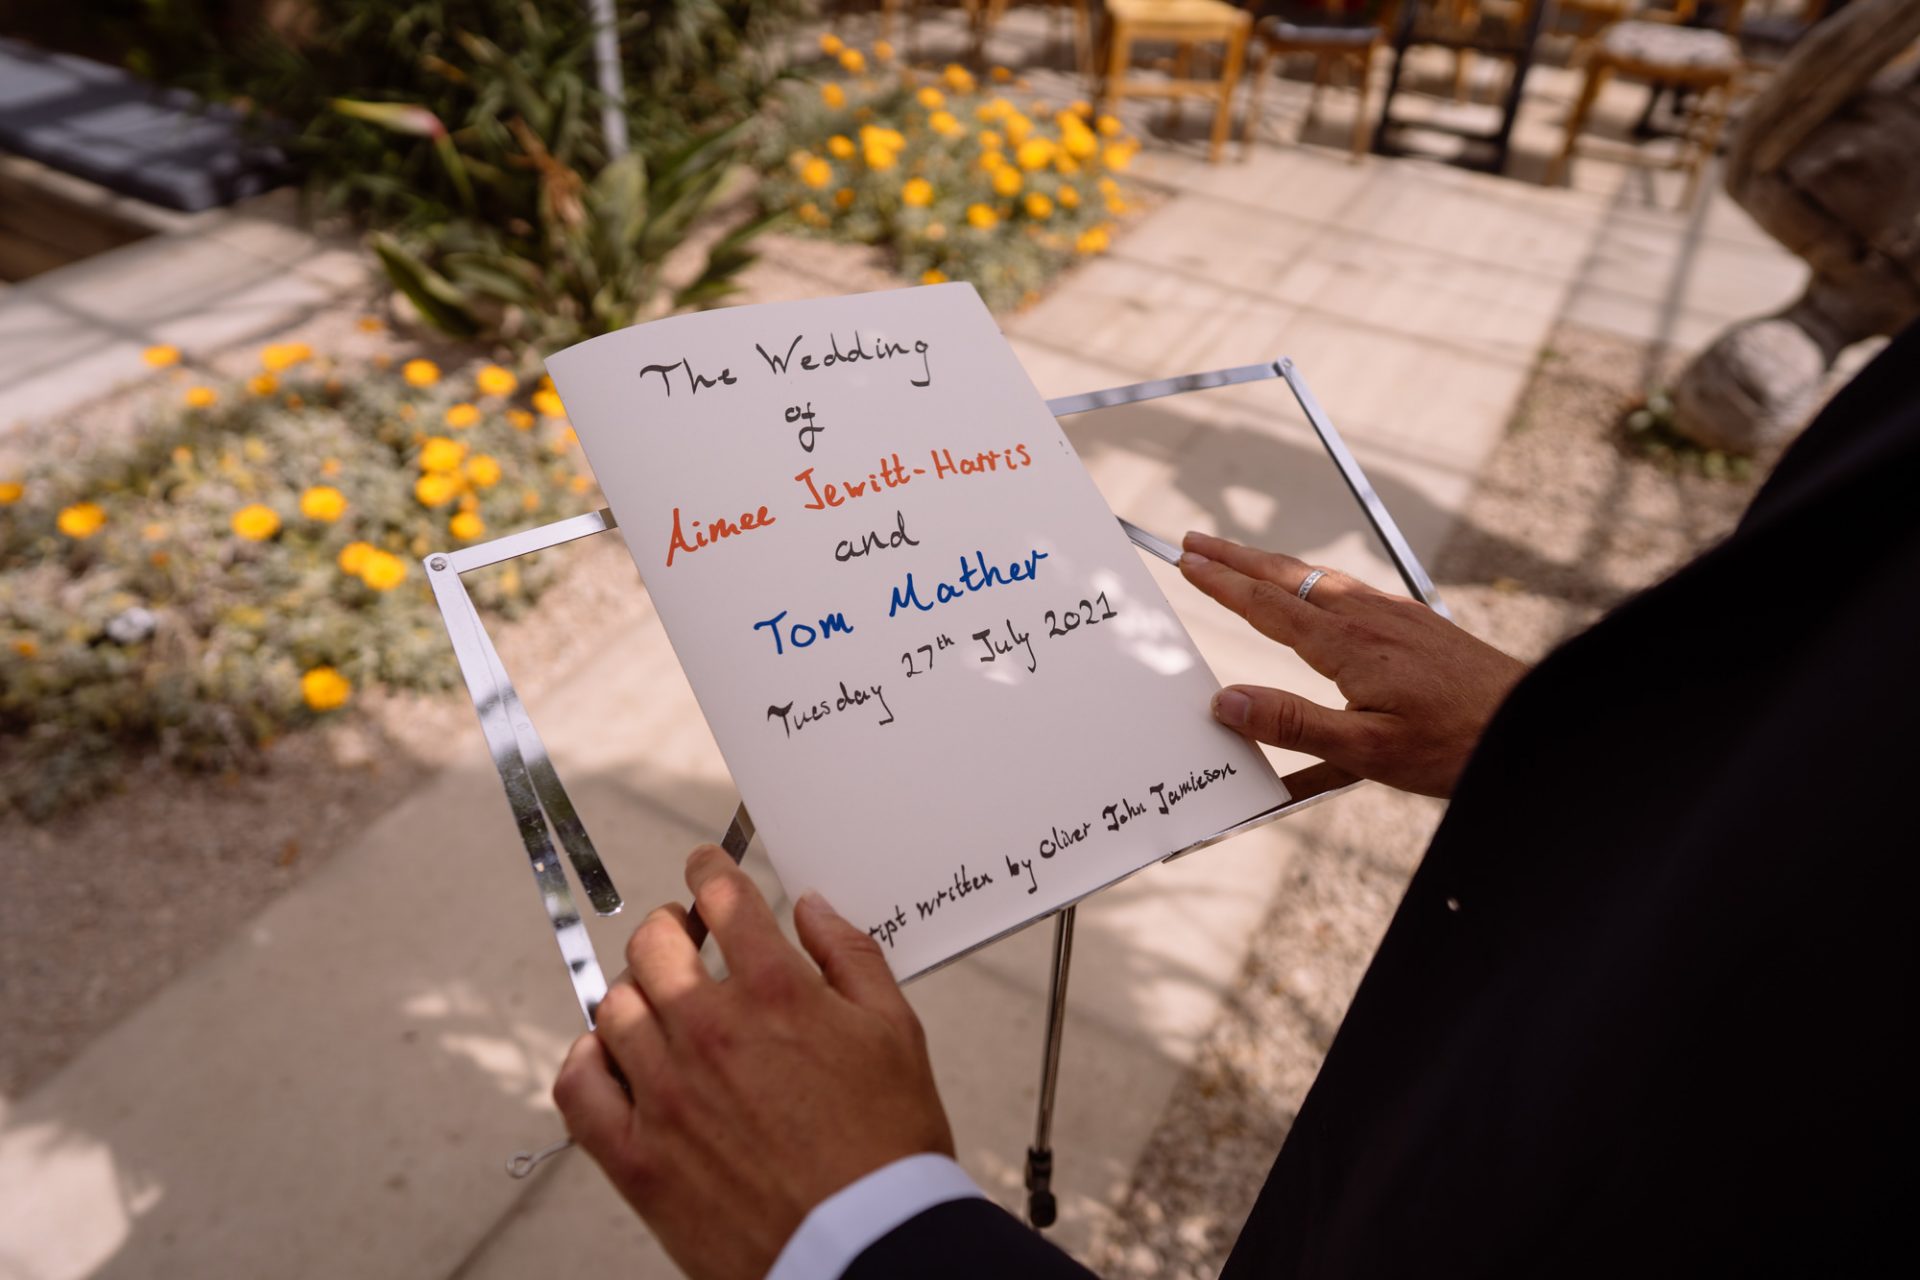 The Wedding
of
Aimee Jewitt-Harris
and
Tom Mather
Tuesday 27th July 2021
ript written by Oliver John Jamieson